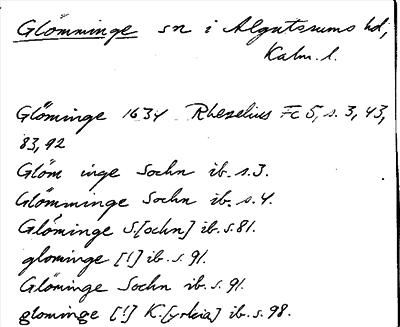 Glömminge sn i Algutsrums hd,
Kalm. l.
Glöminge 1634 Rhezelius Fc 5, s. 3, 43,
83, 92
Glöm inge Sochn ib. s. 3.
Glömminge Sochn ib. s. 4.
Glöminge S.[ochn] ib. s. 81.
glominge [!] ib. s. 91.
Glöminge Sochn ib. s. 91.
glominge [!] K.[yrkia] ib. s. 98.